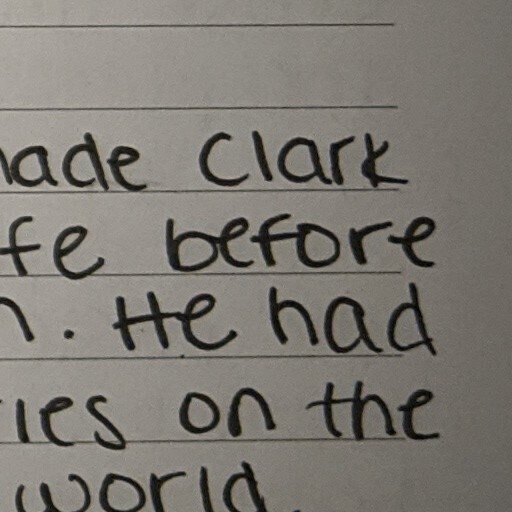 ade Clark
fe before
. He had
ies on the
world.